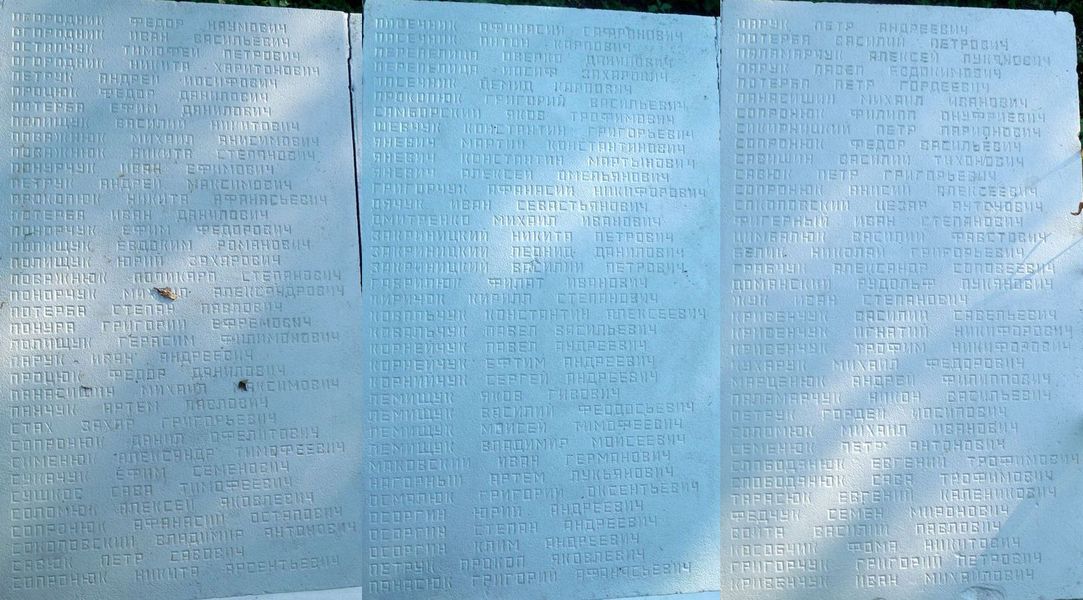 ОГОРОДНИК ФЕДОР НАУМОВИЧ
ОГОРОДНИК ИВАН ВАСИЛЬЕВИЧ
ОСТАПЧУК ТИМОФЕЙ ПЕТРОВИЧ
ОГОРОДНИК НИКИТА ХАРИТОНОВИЧ
ПЕТРУК АНДРЕЙ ИОСИФОВИЧ
ПРОЦЮК ФЕДОР ДАНИЛОВИЧ
ПОТЕРБА ЕФИМ ДАНИЛОВИЧ
ПОЛИЩУК ВАСИЛИЙ НИКИТОВИЧ
ПОВАЖНЮК МИХАИЛ АНИСИМОВИЧ
НИКИТА СТЕПАНОВИЧ
ПОНУРЧУК ИВАН ЕФИМОВИЧ
ПЕТРУК АНДРЕЙ МАКСИМОВИЧ
ПРОКОПЮК НИКИТА АФАНАСЬЕВИЧ
ПОТЕРБА ИВАН ДАНИЛОВИЧ
ПОНОРЧУК ЕФИМ ФЕДОРОВИЧ
ПОЛИЩУК ЕВДОКИМ РОМАНОВИЧ
ПОЛИЩУК ЮРИЙ ЗАХАРОВИЧ
ПОЛИКАРП СТЕПАНОВИЧ
ПОНОРЧУК АЛЕКСАНДРОВИЧ
ПОТЕРБА СТЕПАН ПАВЛОВИЧ
ПОНУРА ГРИГОРИЙ ЕФРЕМОВИЧ
ПОЛИЩУК ГЕРАСИМ ФИЛИМОНОВИЧ
ПАРУК ИВАН АНДРЕЕВИЧ
ПРОЦЮК ФЕДОР ДАНИЛОВИЧ
ПАНАСИШИН МИХАИЛ МАКСИМОВИЧ
ПАНЧУК АРТЕМ ПАВЛОВИЧ
СТАХ ЗАХАР ГРИГОРЬЕВИЧ
СОПРОНЮК ДАНИЛ
СИМЕНЮК АЛЕКСАНДР ТИМОФЕЕВИЧ
СУКАЧУК ЕФИМ СЕМЕНОВИЧ
СУШКОС САВА ТИМОФЕЕВИЧ
СОЛОМЮК АЛЕКСЕЙ ЯКОВЛЕВИЧ
СОПРОНЮК АФАНАСИЙ ОСТАПОВИЧ
СОКОЛОВСКИЙ ВЛАДИМИР АНТОНОВИЧ
САВЮК ПЕТР САВОВИЧ
СОПРОНЮК НИКИТА АРСЕНТЬЕВИЧ
ПАСЕЧНИК АФАНАСИЙ САФРОНОВИЧ
АНТОН КАРПОВИЧ
ПЕРЕПЕЛИЦА ОВЕРКО ДАНИЛОВИЧ
ПЕРЕПЕЛИЦА ИОСИФ ЗАХАРОВИЧ
ПАСЕЧНИК ДЕМИД КАРПОВИЧ
ПРОКОПЮК ГРИГОРИЙ ВАСИЛЬЕВИЧ
САМБОРСКИЙ ЯКОВ ТРОФИМОВИЧ
ШЕВЧУК КОНСТАНТИН ГРИГОРЬЕВИЧ
ЯНЕВИЧ МАРТИН КОНСТАНТИНОВИЧ
ЯНЕВИЧ КОНСТАНТИН МАРТЫНОВИЧ
ЯНЕВИЧ АЛЕКСЕЙ ОМЕЛЬЯНОВИЧ
ГРИГОРЧУК АФАНАСИЙ НИКИФОРОВИЧ
ИВАН СЕВАСТЬЯНОВИЧ
ДМИТРЕНКО МИХАИЛ ИВАНОВИЧ
ЗАКРИНИЦКИЙ НИКИТА ПЕТРОВИЧ
ЗАКРИНИЦКИЙ ЛЕОНИД ДАНИЛОВИЧ
ЗАКРИНИЦКИЙ ВАСИЛИЙ ПЕТРОВИЧ
ГАВРИЛЮК ФИЛАТ ИВАНОВИЧ
КИРИЧОК КИРИЛЛ СТЕПАНОВИЧ
КОВАЛЬЧУК КОНСТАНТИН АЛЕКСЕЕВИЧ
КОВАЛЬЧУК ПАВЕЛ ВАСИЛЬЕВИЧ
КОРНЕЙЧУК ПАВЕЛ АНДРЕЕВИЧ
КОРНЕЙЧУК ЕФТИМ АНДРЕЕВИЧ
КОРНИЙЧУК СЕРГЕЙ АНДРЕЕВИЧ
ЛЕМИЩУК ЯКОВ
ЛЕМИЩУК ВАСИЛИЙ ФЕОДОСЬЕВИЧ
ЛЕМИЩУК МОИСЕЙ ТИМОФЕЕВИЧ
ЛЕМИЩУК ВЛАДИМИР МОИСЕЕВИЧ
МАКОВСКИЙ ИВАН ГЕРМАНОВИЧ
НАГОРНЫЙ АРТЕМ ЛУКЬЯНОВИЧ
ОСМАЛЮК ГРИГОРИЙ ОКСЕНТЬЕВИЧ
ОСОРГИН ЮРИЙ АНДРЕЕВИЧ
ОСОРГИН СТЕПАН АНДРЕЕВИЧ
ОСОРГИН КЛИМ АНДРЕЕВИЧ
ПЕТРУК ПРОКОП ЯКОВЛЕВИЧ
ПАНАСЮК ГРИГОРИЙ АФАНАСЬЕВИЧ
ПАРУК ПЕТР АНДРЕЕВИЧ
ПОТЕРБА ВАСИЛИЙ ПЕТРОВИЧ
ПАЛАМАРЧУК АЛЕКСЕЙ ЛУКАНОВИЧ
ПАРУК ПАВЕЛ ЕВДОКИМОВИЧ
ПОТЕРБА ПЕТР ГОРДЕЕВИЧ
ПАНАСИШИН МИХАИЛ ИВАНОВИЧ
СОПРОНЮК ФИЛИПП ОНУФРИЕВИЧ
СИКИРНИЦКИЙ ПЕТР ЛАРИОНОВИЧ
СОПРОНЮК ФЕДОР ВАСИЛЬЕВИЧ
САВИШИН ВАСИЛИЙ ТИХОНОВИЧ
САВЮК ПЕТР ГРИГОРЬЕВИЧ
СОПРОНЮК АНИСИЙ АЛЕКСЕЕВИЧ
СОКОЛОВСКИЙ ЦЕЗАР АНТОНОВИЧ
ФИГЕРНЫЙ ИВАН СТЕПАНОВИЧ
ЦИМБАЛЮК ВАСИЛИЙ ФАВСТОВИЧ
БЕЛИК НИКОЛАЙ ГРИГОРЬЕВИЧ
ГРАБЧУК АЛЕКСАНДР СОЛОВЕЕВИЧ
ДОМАНСКИЙ АДОЛЬФ ЛУКАНОВИЧ
ЖУК ИВАН СТЕПАНОВИЧ
КРИВЕНЧУК ВАСИЛИЙ САВЕЛЬЕВИЧ
КРИВЕНЧУК ИГНАТИЙ НИКИФОРОВИЧ
КРИВЕНЧУК ТРОФИМ НИКИФОРОВИЧ
КУХАРУК МИХАИЛ ФЕДОРОВИЧ
МАРЦЕНЮК АНДРЕЙ ФИЛИППОВИЧ
ПАЛАМАРЧУК НИКОН ВАСИЛЬЕВИЧ
ПЕТРУК ГОРДЕЙ ИОСИПОВИЧ
СОЛОМЮК МИХАИЛ ИВАНОВИЧ
СЕМЕНЮК ПЕТР АНТОНОВИЧ
СЛОБОДЯНЮК ЕВГЕНИЙ ТРОФИМОВИЧ
СЛОВОДЯНЮК САВА ТРОФИМОВИЧ
ТАРАСЮК ЕВГЕНИЙ КАЛЕНИКОВИЧ
ФЕДЧУК СЕМЕН МИРОНОВИЧ
ВОЙТА ВАСИЛИЙ ПАВЛОВИЧ
КОСОБЧИК ФОМА НИКИТОВИЧ
ГРИГОРЧУК ГРИГОРИЙ ПЕТРОВИЧ
КРИВЕНЧУК ИВАН МИХАЙЛОВИЧ